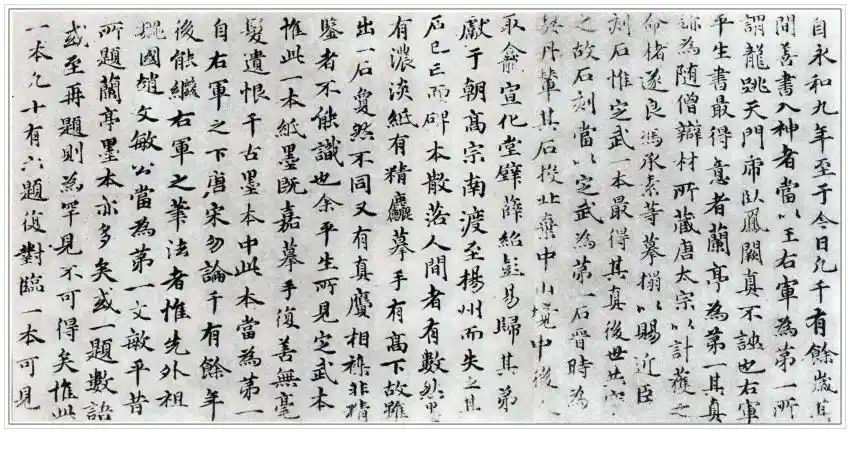 自永和九年至于今日凡千有餘歲其
間善書入神者當以王右軍為第一所
謂龍跳天門虎臥鳳闕真不誣也右軍
平生書最得意者蘭亭為第一其真
跡為隨僧辯材所藏唐太宗以計獲之
命褚遂良馮承素等摹搨以賜近臣
刻石惟定武一本最得其真後世共
之故石刻當以定武為第一石晉時為
契丹輦其石投北棄中山境中後人
取龕宣化堂壁薛紹彭易歸其弟
獻于朝高宗南渡至楊州而失之其
石已亡而碑本散落人間者有數然墨
有濃淡紙有精麤摹手有高下故雖
出一石夐然不同又有真贗相襍非精
鑒者不能識也余平生所見定武本
惟此一本紙墨既嘉摹手復善無毫
髮遺恨千古墨本中此本當為第一
自右軍之下唐宋勿論千有餘年
後能繼右軍之筆法者惟先外祖
魏國趙文敏公當為第一文敏平昔
所題蘭亭墨本亦多矣或一題數語
或至再題則為罕見不可得矣惟此
一本凡十有六題復對臨一本可見